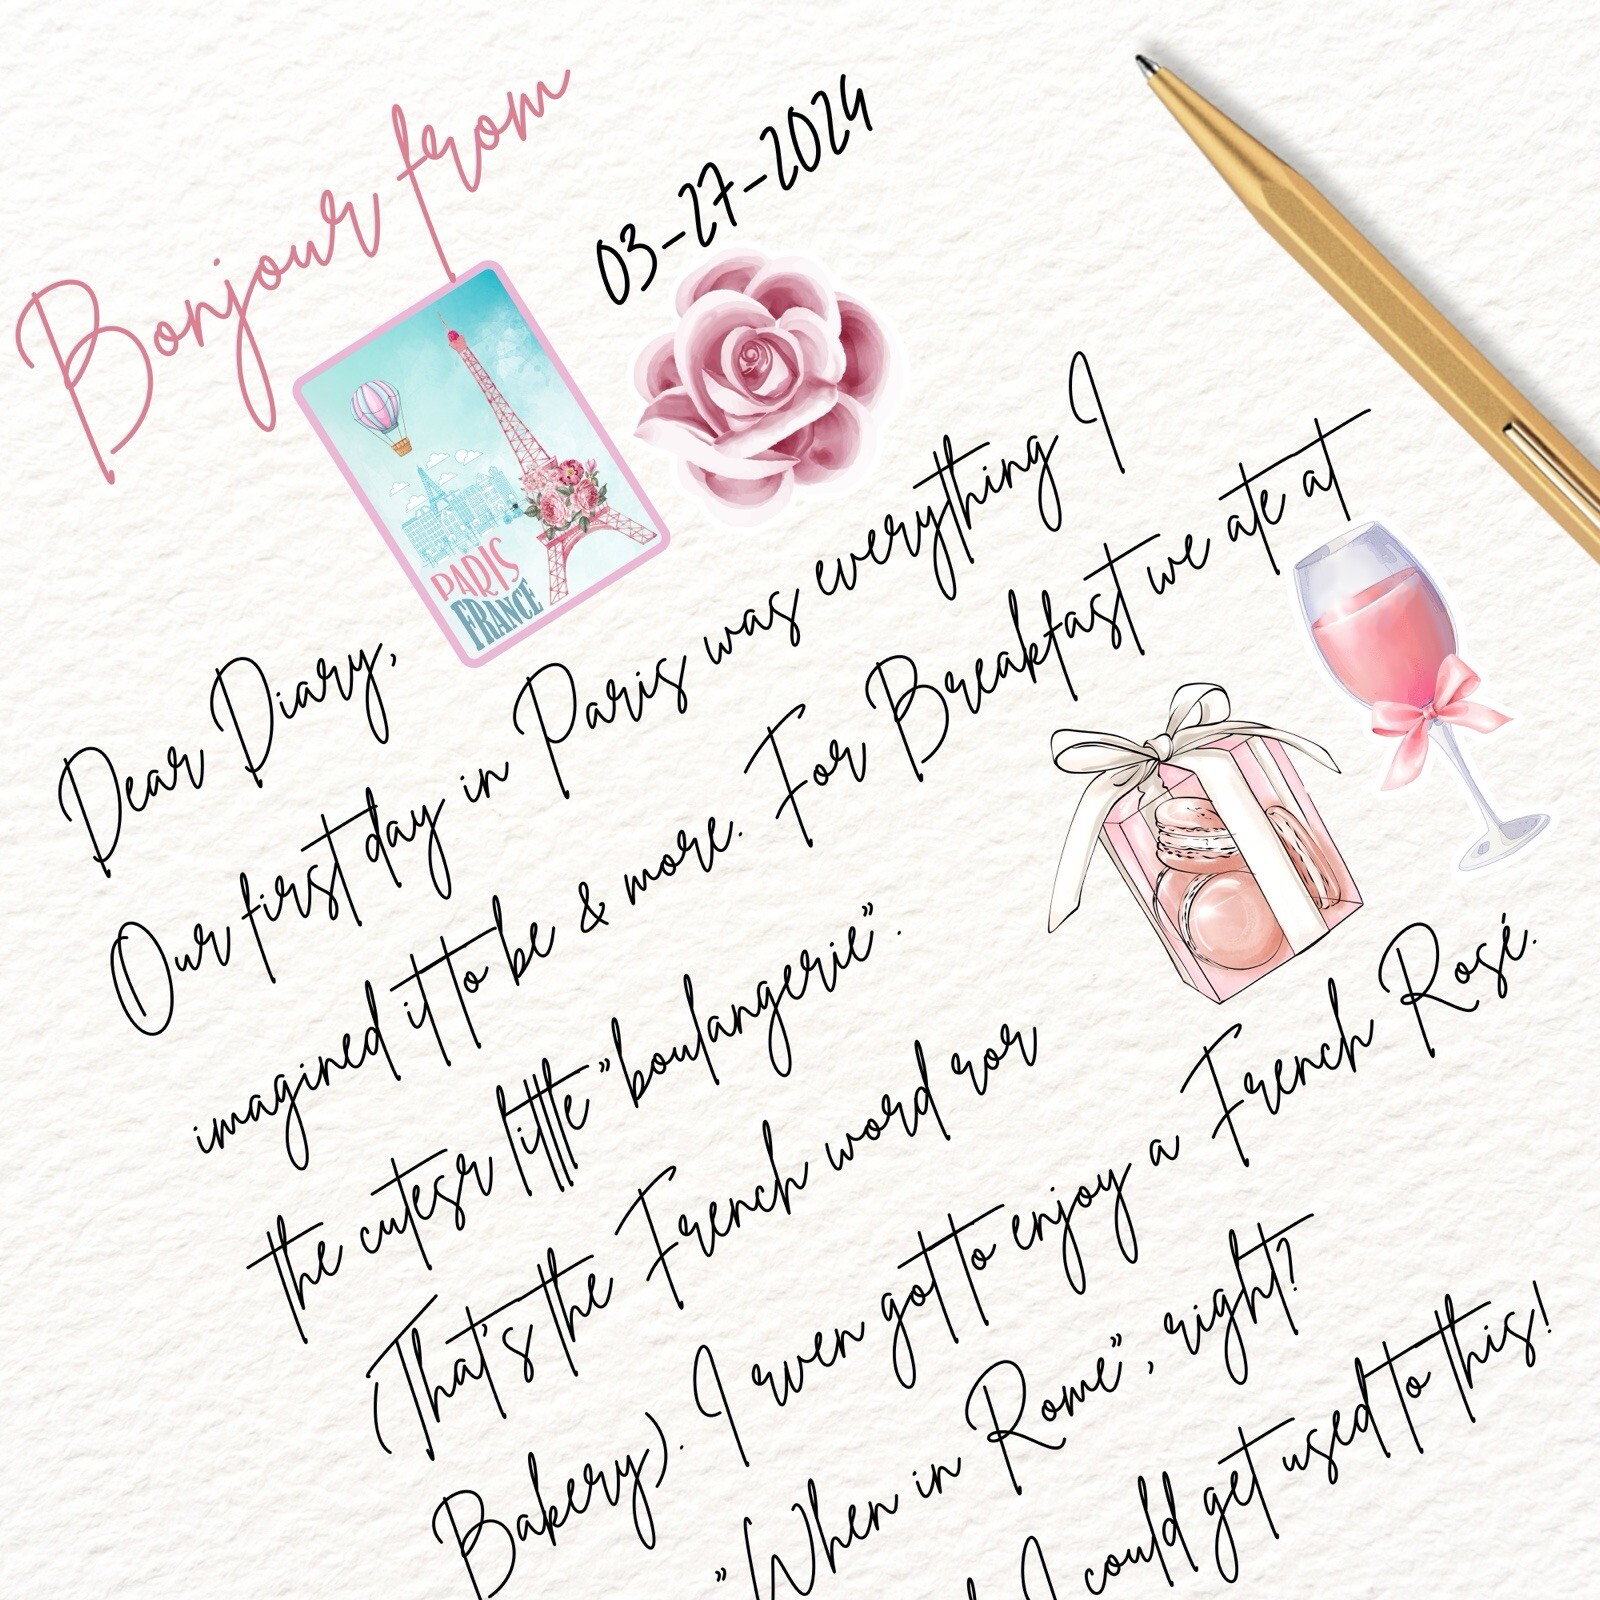 Bonjour from
03-27-2024
PARIS
FRANCE
Dear Diary,
Our first day in Paris was everything I
imagined it to be & more. For Breakfast we ate at
the cutesr little "boulangerie".
(That's the French word ror
Bakery). I even got to enjoy a French Rosé.
"When in Rome", right?
I could get used to this!